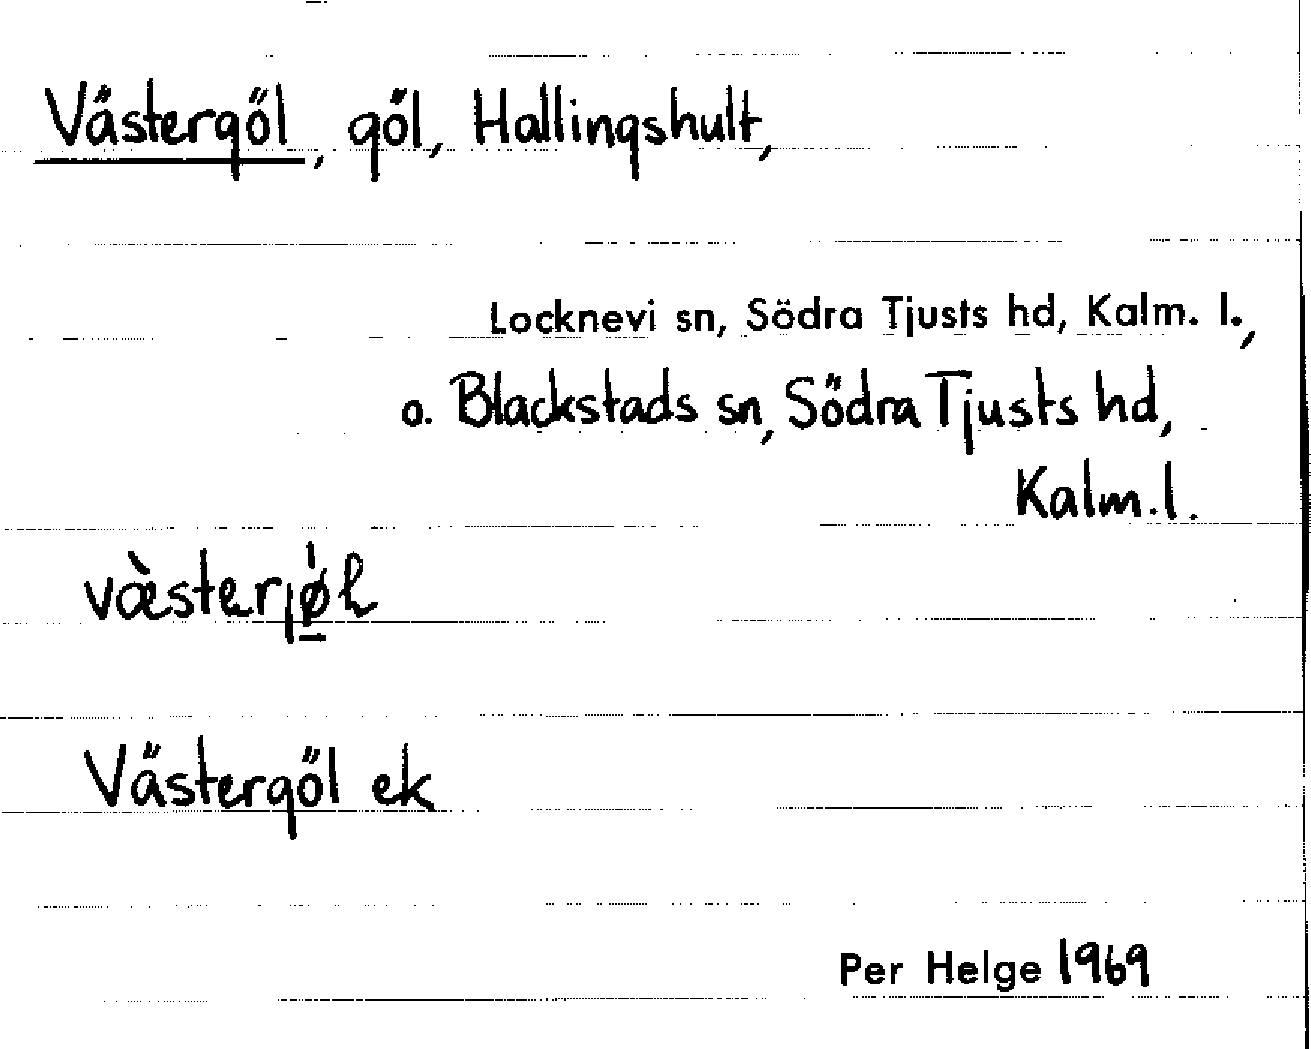 Västergöl, göl, Hallingshult,
Locknevi sn, Södra Tjusts hd, Kalm. l.,
o. Blackstads sn, Södra Tjusts hd,
Kalm.l.
væ̀sterjǿ̱l
Västergöl ek
Per Helge 1969